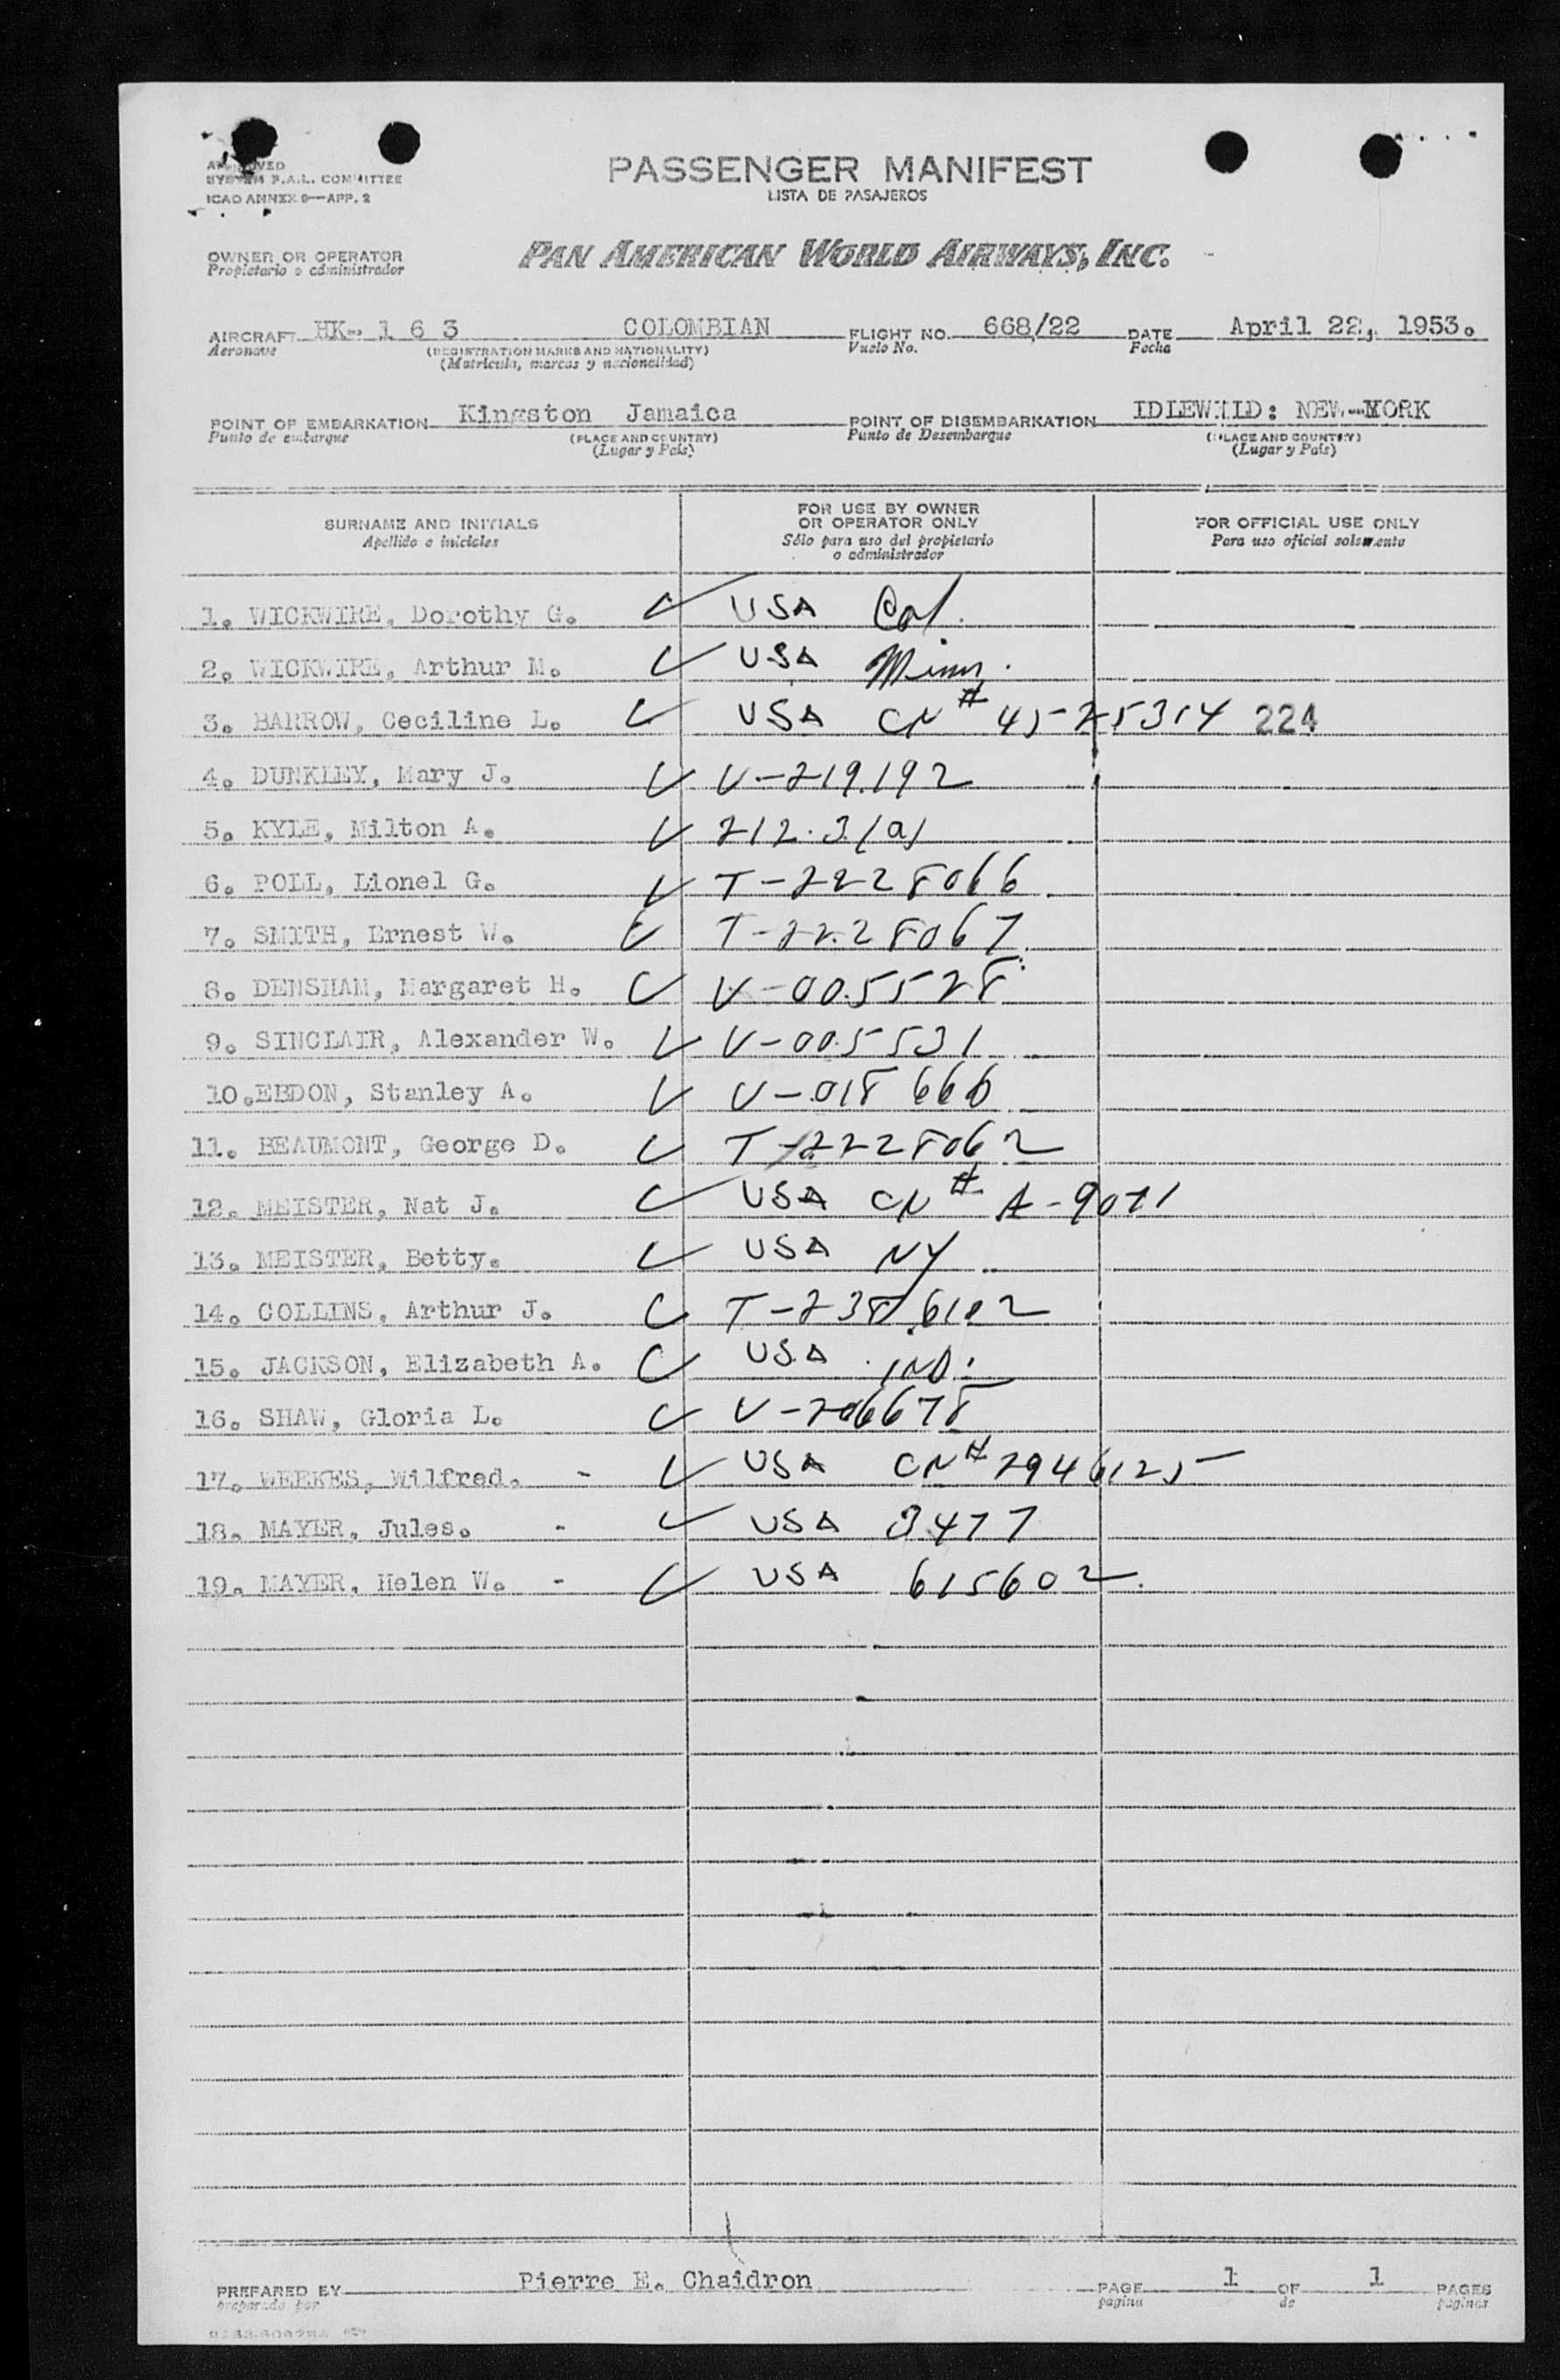 APPROVED
SYSTEM F.A.L. COMMITTEE
ICAO ANNEX 9—APP. 2
PASSENGER MANIFEST
LISTA DE PASAJEROS
OWNER OR OPERATOR
Propietario o administrador
PAN AMERICAN WORLD AIRWAYS, INC.
AIRCRAFT HK- 1 6 3 COLOMBIAN FLIGHT NO. 668/22 DATE April 22, 1953.
Aeronave (REGISTRATION MARKS AND NATIONALITY) Vuelo No. Fecha
(Matricula, marcas y nacionalidad)
POINT OF EMBARKATION Kingston Jamaica POINT OF DISEMBARKATION IDLEWILD: NEW-YORK
Punto de embarque (PLACE AND COUNTRY) Punto de Desembarque (PLACE AND COUNTRY)
(Lugar y País) (Lugar y País)
SURNAME AND INITIALS
Apellido e iniciales
FOR USE BY OWNER
OR OPERATOR ONLY
Sólo para uso del propietario
o administrador
FOR OFFICIAL USE ONLY
Para uso oficial solamente
1. WICKWIRE, Dorothy G. ✓ USA Cal.
2. WICKWIRE, Arthur M. ✓ USA Minn.
3. BARROW, Ceciline L. ✓ USA CN# 45-25314 224
4. DUNKLEY, Mary J. ✓ V-219192
5. KYLE, Milton A. ✓ 212.3(a)
6. POLL, Lionel G. ✓ T-2228066
7. SMITH, Ernest W. ✓ T-2228067
8. DENSHAM, Margaret H. ✓ V-005528
9. SINCLAIR, Alexander W. ✓ V-005531
10.EBDON, Stanley A. ✓ V-018666
11. BEAUMONT, George D. ✓ T-2228062
12. MEISTER, Nat J. ✓ USA CN# A-9071
13. MEISTER, Betty. ✓ USA NY
14. COLLINS, Arthur J. ✓ T-2386102
15. JACKSON, Elizabeth A. ✓ USA IND.
16. SHAW, Gloria L. ✓ V-206678
17. WEEKES, Wilfred. - ✓ USA CN# 2946125
18. MAYER, Jules. - ✓ USA 3477
19. MAYER, Helen W. - ✓ USA 615602
PREPARED BY Pierre E. Chaidron PAGE 1 OF 1 PAGES
preparado por pagina de páginas